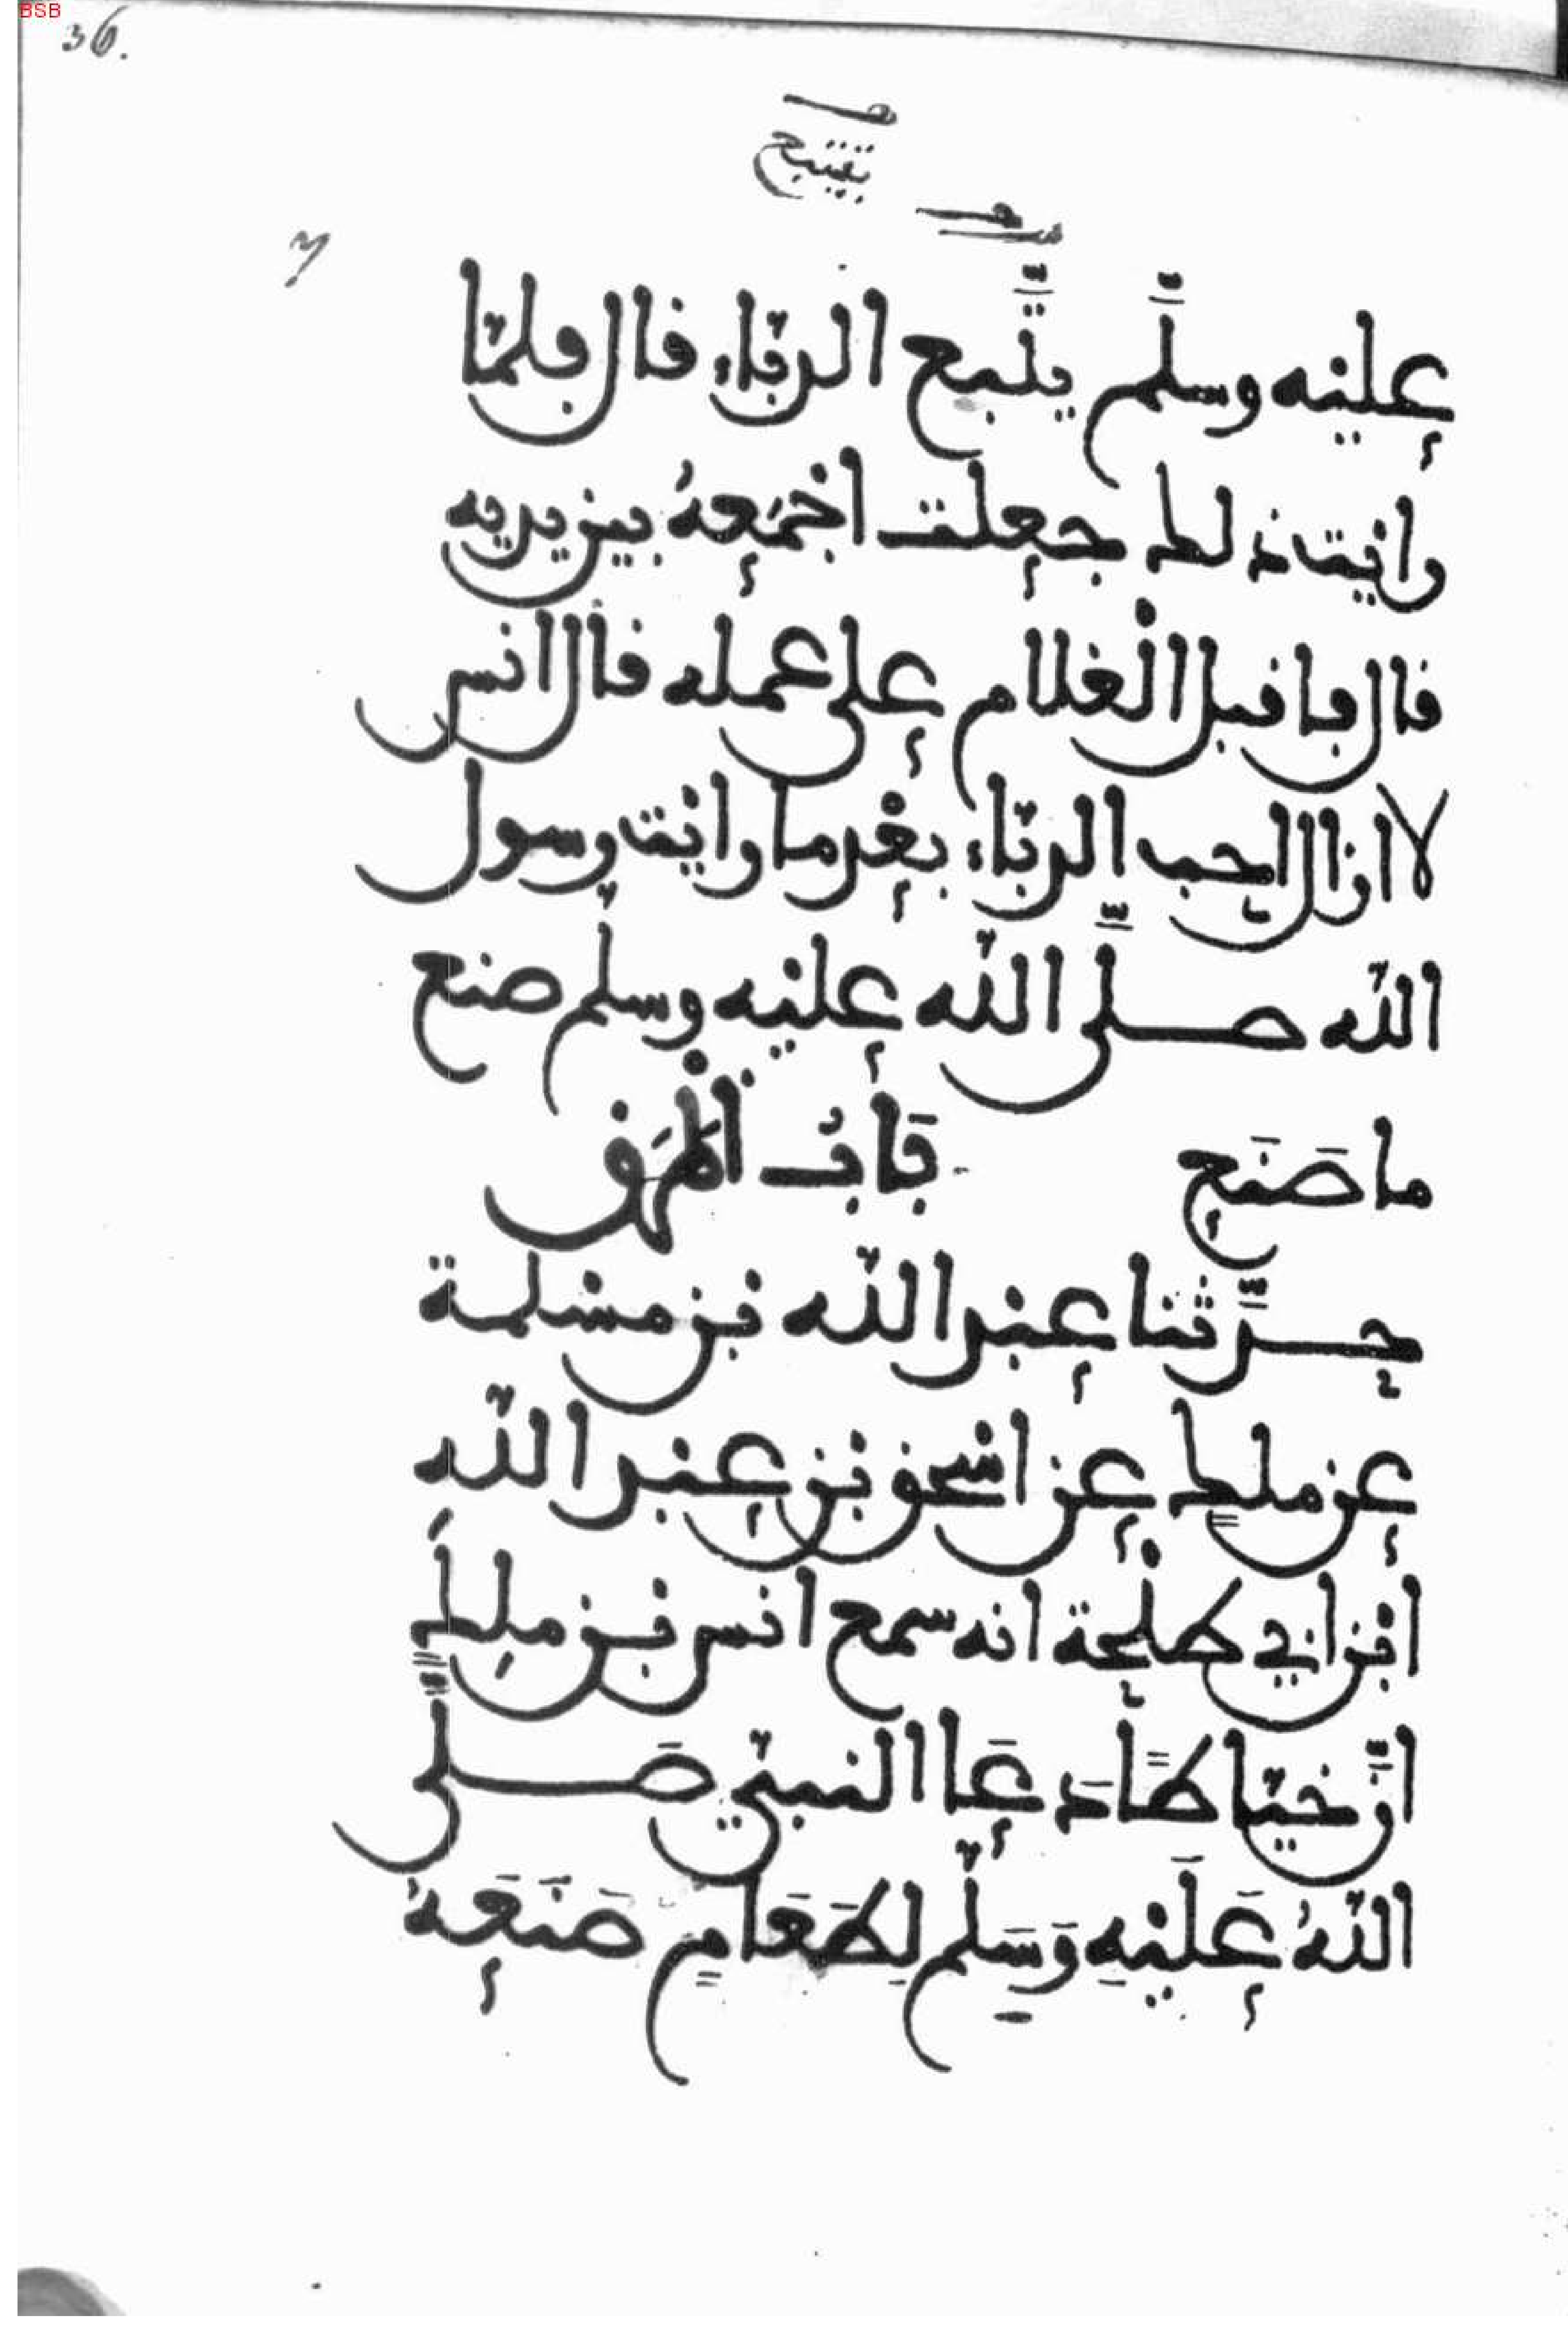 BSB
36.
صـ
يتتبع
صـ
عليه وسلّم يتّبع الدبّاء قال فلمّا
رايت ذلك جعلت اجمعهُ بين يديه
قال فاقبل الغلام على عمله قال انس
لا ازال احب الدبّاء بعد ما رايت رسول
الله صلّى الله عليه وسلم صنع
ما صَنَع بَابُ المَرَق
حدّثنا عبد الله بن مسلمة
عن ملك عن اسحق بن عبد الله
ابن ابي طلحة انه سمع انس بن ملِكٍ
انّ خيّاطًا دَعَا النبيّ صَلّى
اللهُ عَلَيْهِ وَسَلّم لِطَعَامٍ صَنَعَهُ